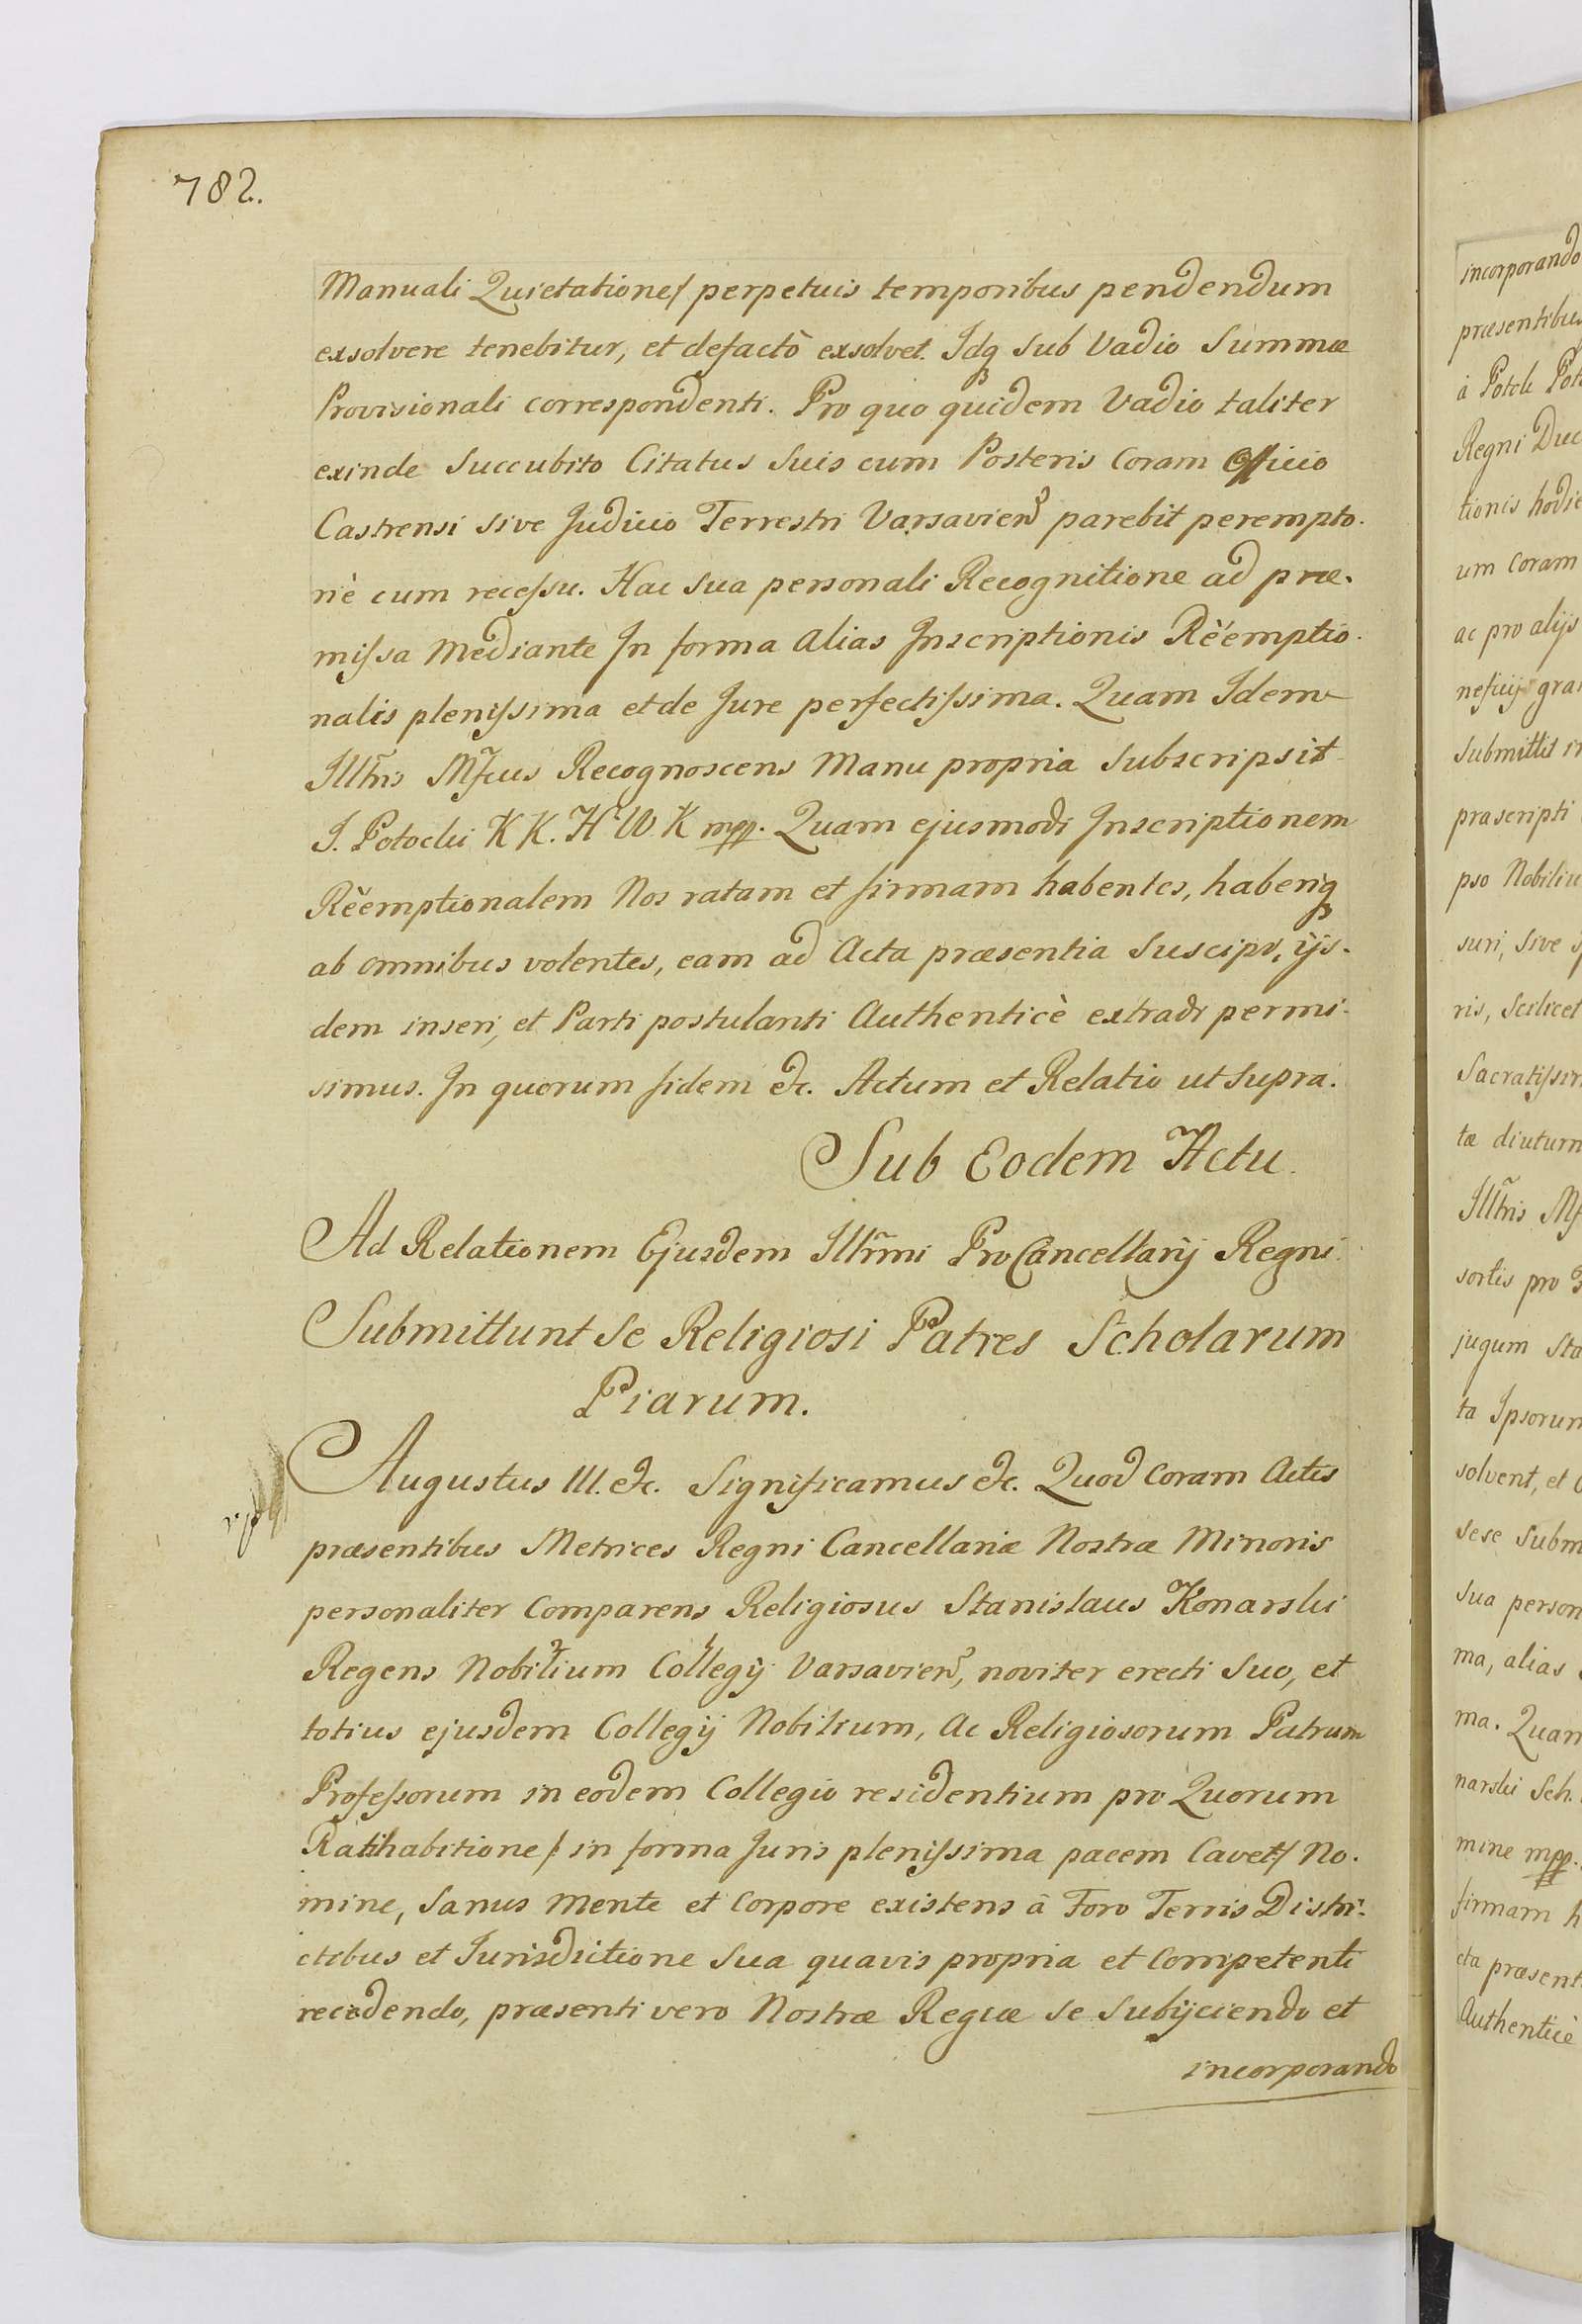 782.
Manuali Quietatione/ perpetuis temporibus pendendum
exsolvere tenebitur, et defactò exsolvet. Idq sub Vadio Summæ
Provisionali correspondenti. Pro quo quidem Vadio taliter
exinde Succubito Citatus Suis cum Posteris Coram Officio
Castrensi sive Judicio Terrestri Varsavien̄ parebit perempto-
riè cum recessu. Hac sua personali Recognitione ad præ-
missa Mediante In forma alias Inscriptionis Rèemptio-
nalis plenissima et de Jure perfectissima. Quam Idem
Illt̃ris Mf̃cus Recognoscens Manu propria Subscripsit
J. Potocki K K. H W. K mpp. Quam ejusmodi Inscriptionem
Rèemptionalem Nos ratam et firmam habentes, haberiq
ab omnibus volentes, eam ad Acta præsentia Suscipi, ijs-
dem inseri, et Parti postulanti Authenticè extradi permi-
simus. In quorum fidem &c. Actum et Relatio ut supra.
Sub Eodem Actu.
Ad Relationem Ejusdem Illr̃mi ProCancellarij Regni
Submittunt Se Religiosi Patres Scholarum
Piarum.
Augustus III. &c. Significamus &c. Quod Coram Actis
præsentibus Metrices Regni Cancellariæ Nostræ Minoris
personaliter Comparens Religiosus Stanislaus Konarski
Regens Nobilium Collegij Varsavien̄, noviter erecti Suo, et
totius ejusdem Collegij Nobilium, ac Religiosorum Patrum
Professorum in eodem Collegio residentium pro Quorum
Ratihabitione/ in forma Juris plenissima pacem Cavet/ No-
mine, Sanus Mente et Corpore existens à Foro Terris Distri-
ctibus et Jurisdictione Sua quavis propria et Competenti
recedendo, præsenti vero Nostræ Regiæ se Subijciendo et
incorporando
incorporando
præsentibus
à
Regni Duc
tionis hodie
um Coram
ac pro alijs
neficijs gra
Submittit
præscripti
pso Nobiliu
suri, Sive
ris, Scilicet
Sacratissim
tæ diuturn
Illt̃ris Mf
sortis pro
jugum Sta
ta Ipsorum
solvent, et
sese Subm
Sua person
ma, alias
ma. Quam
narski Sch.
mine mpp.
firmam h
cta præsent
Authenticè